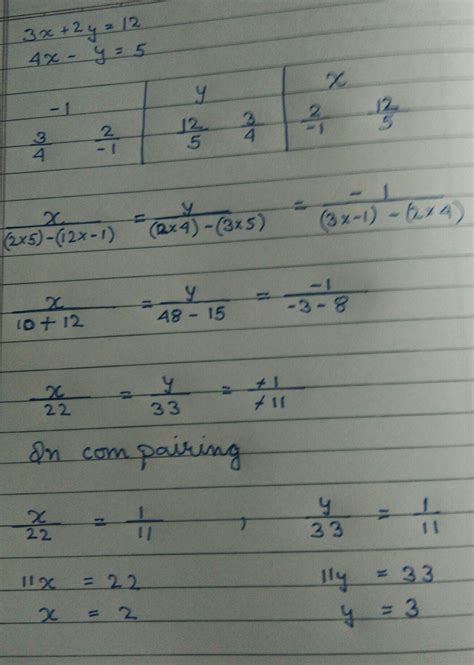 3x+2y=12
4x- y=5
-1 | y | x
3/4 2/-1 | 12/5 3/4 | 2/-1 12/5
x/((2×5)-(12×-1)) = y/((12×4)-(3×5)) = -1/((3×-1)-(2×4))
x/(10+12) = y/(48-15) = -1/(-3-8)
x/22 = y/33 = -1/-11
On compairing
x/22 = 1/11 , y/33 = 1/11
11x = 22 11y = 33
x = 2 y = 3